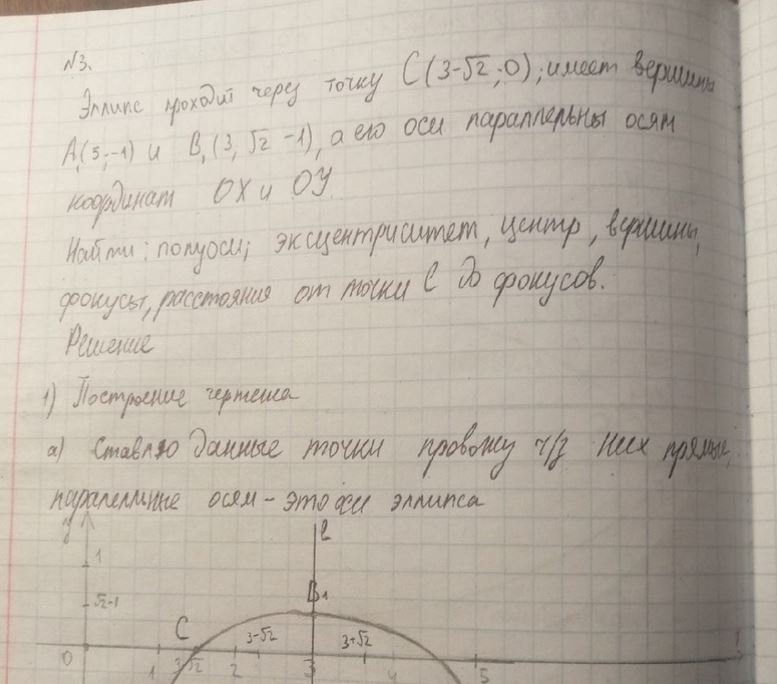 №3.
Эллипс проходит через точку C(3-√2;0); имеет вершины
A₁(5;-1) и B₁(3, √2-1), а его оси параллельны осям
координат OX и OY.
Найти: полуоси; эксцентриситет, центр, вершины,
фокусы, расстояния от точки C до фокусов.
Решение
1) Построение чертежа
а) Ставлю данные точки провожу ч/з них прямые,
параллельные осям - это оси эллипса
y
l
1
B₁
√2-1
C
3-√2
3+√2
0
1
3-√2
2
3
4
5